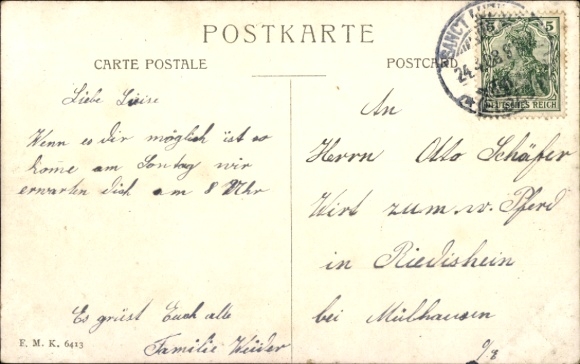 POSTKARTE
CARTE POSTALE
POSTCARD
SANCT LUDWIG
24.4.08
5 5
DEUTSCHES REICH
Liebe Luise
Wenn es dir möglich ist so
kome am Sontag wir
erwarten dich am 8 Uhr
Es grüst Euch alle
Familie
F. M. K. 6413
An
Herrn Otto Schäfer
Wirt zum w. Pferd
in Riedisheim
bei Mülhausen